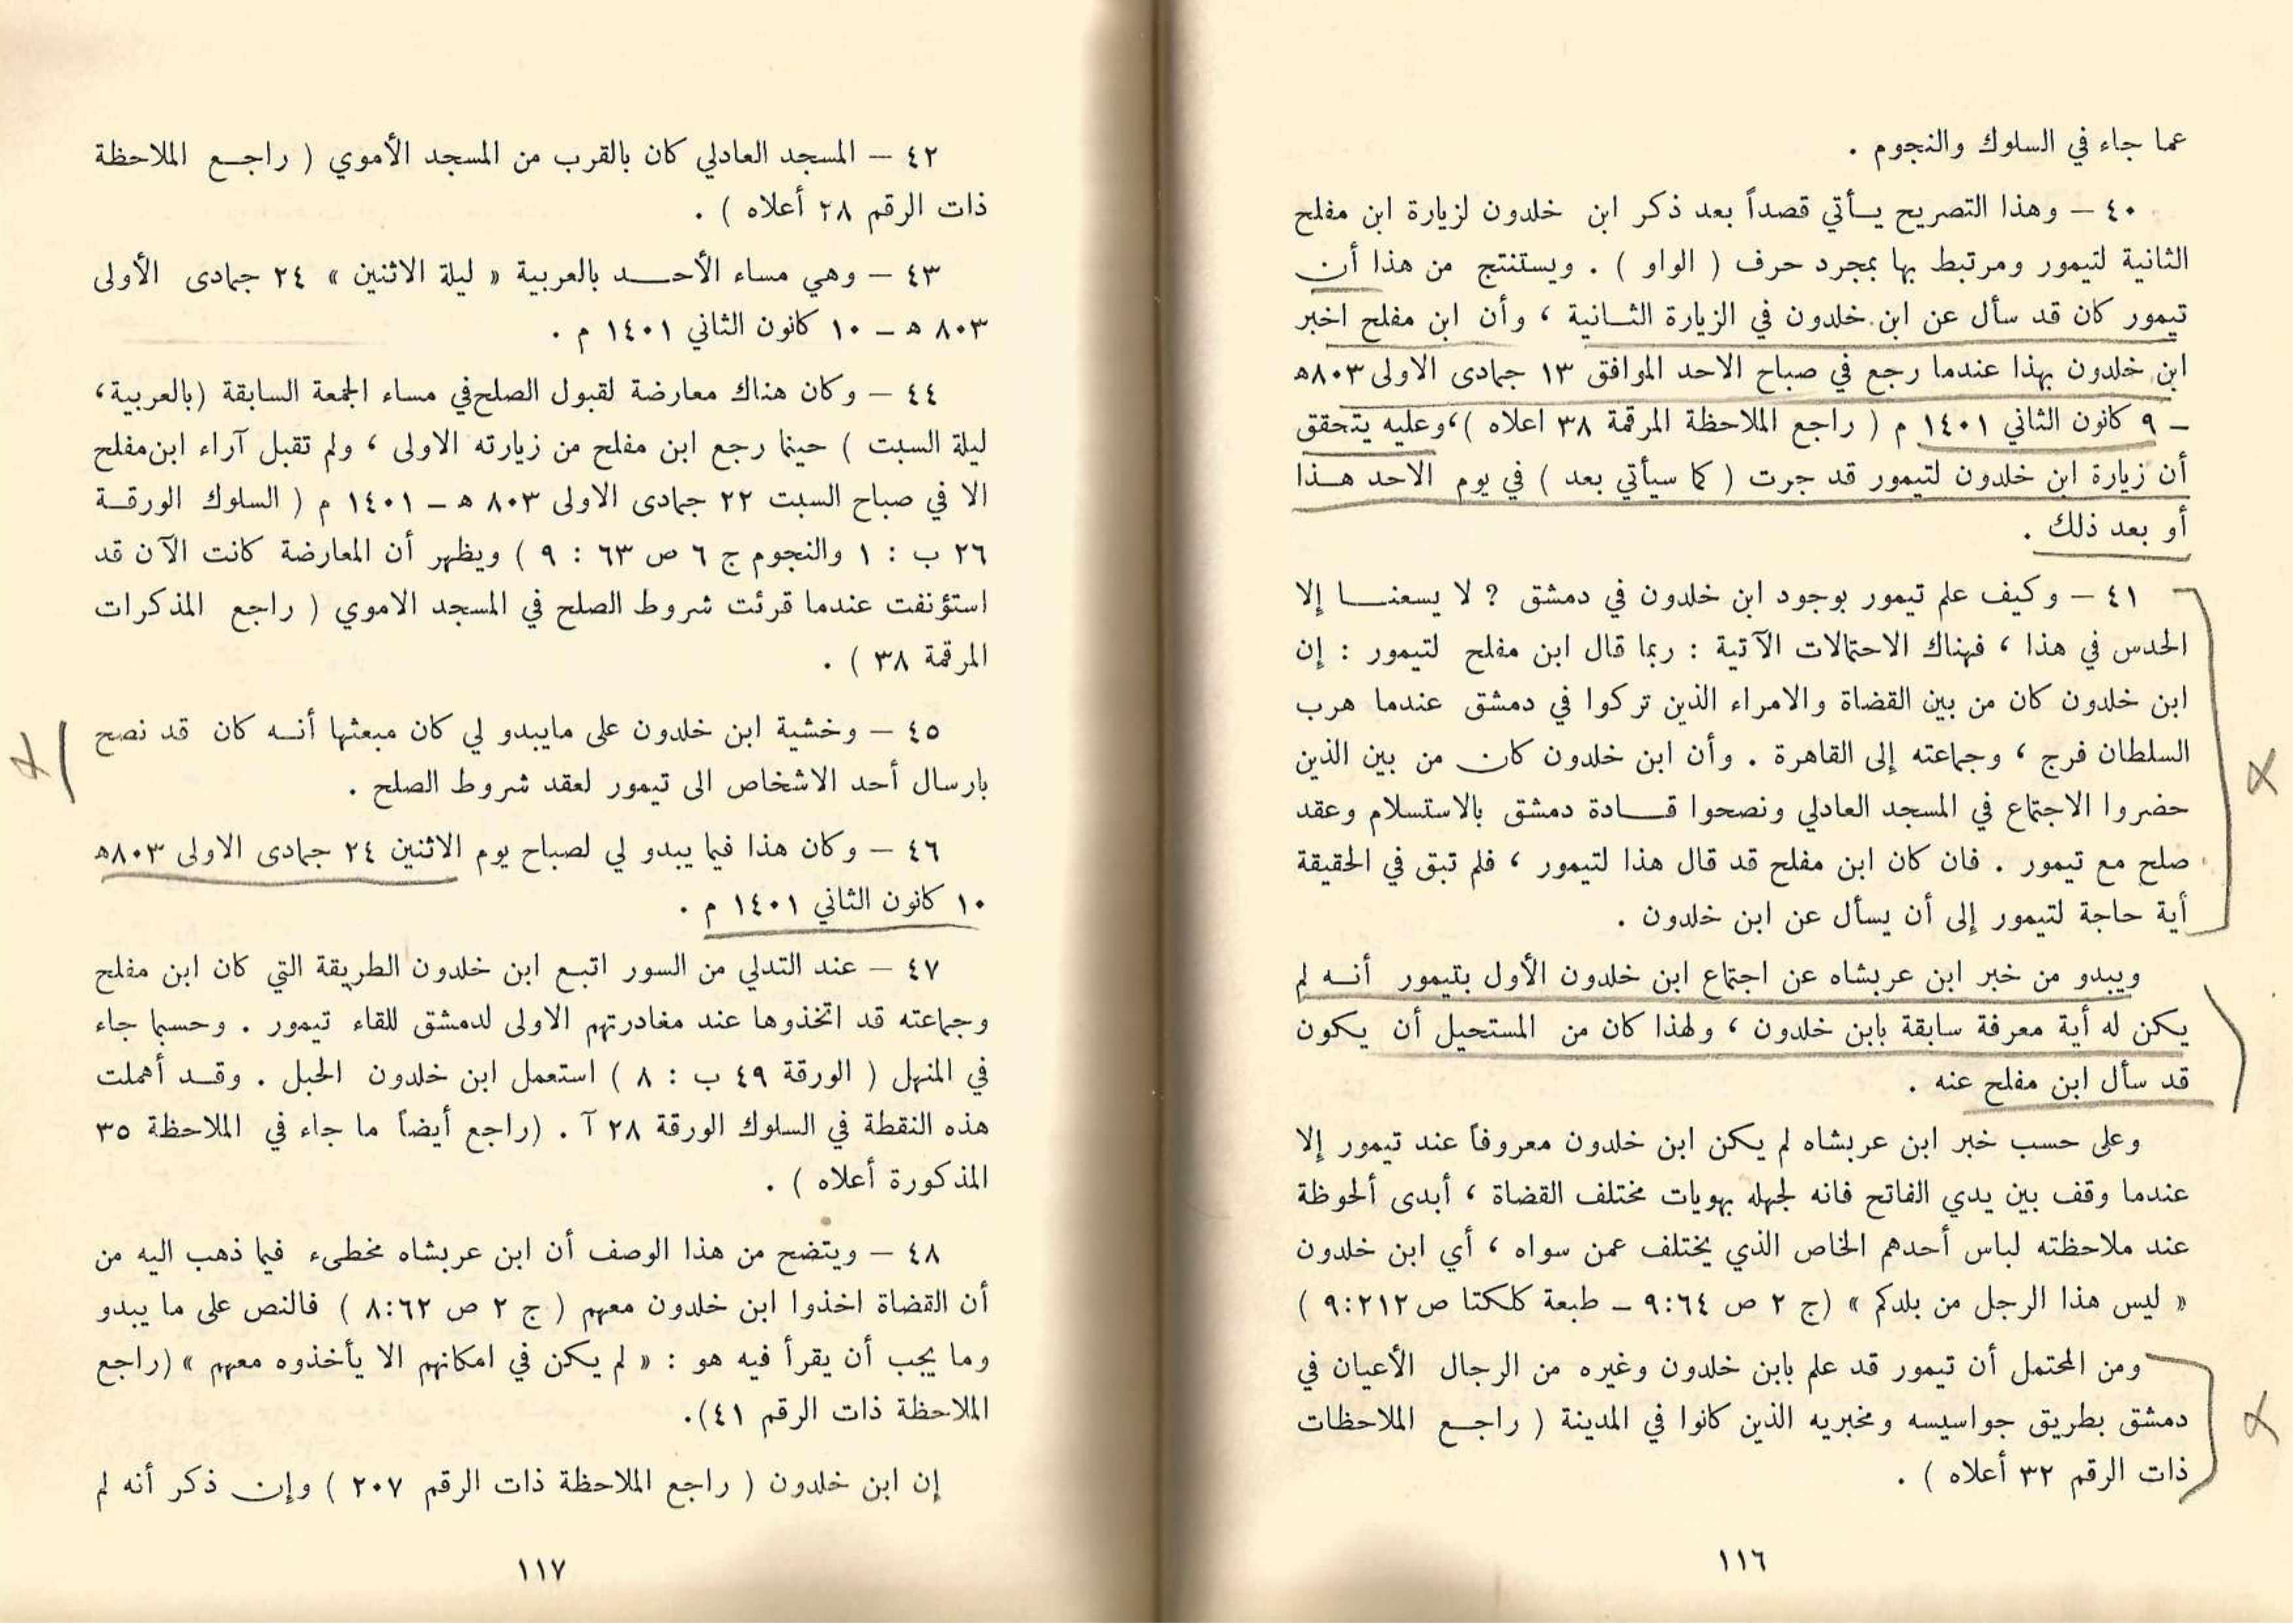 عما جاء في السلوك والنجوم .
٤٠ – وهذا التصريح يـأتي قصداً بعد ذكر ابن خلدون لزيارة ابن مفلح
الثانية لتيمور ومرتبط بها بمجرد حرف ( الواو ) . ويستنتج من هذا أن
تيمور كان قد سأل عن ابن خلدون في الزيارة الثـانية ، وأن ابن مفلح اخبر
ابن خلدون بهذا عندما رجع في صباح الاحد الموافق ١٣ جمادى الاولى ٨٠٣ه
– ٩ كانون الثاني ١٤٠١ م ( راجع الملاحظة المرقمة ٣٨ اعلاه )،وعليه يتحقق
أن زيارة ابن خلدون لتيمور قد جرت ( كما سيأتي بعد ) في يوم الاحد هـذا
أو بعد ذلك .
٤١ – وكيف علم تيمور بوجود ابن خلدون في دمشق ? لا يسعنـا إلا
الحدس في هذا ، فهناك الاحتمالات الآتية : ربما قال ابن مفلح لتيمور : إن
ابن خلدون كان من بين القضاة والامراء الذين تركوا في دمشق عندما هرب
السلطان فرج ، وجماعته إلى القاهرة . وأن ابن خلدون كان من بين الذين
حضروا الاجتماع في المسجد العادلي ونصحوا قـادة دمشق بالاستسلام وعقد
صلح مع تيمور . فان كان ابن مفلح قد قال هذا لتيمور ، فلم تبق في الحقيقة
أية حاجة لتيمور إلى أن يسأل عن ابن خلدون .
ويبدو من خبر ابن عربشاه عن اجتماع ابن خلدون الأول بتيمور أنـه لم
يكن له أية معرفة سابقة بابن خلدون ، ولهذا كان من المستحيل أن يكون
قد سأل ابن مفلح عنه .
وعلى حسب خبر ابن عربشاه لم يكن ابن خلدون معروفاً عند تيمور إلا
عندما وقف بين يدي الفاتح فانه لجهله بهويات مختلف القضاة ، أبدى ألحوظة
عند ملاحظته لباس أحدهم الخاص الذي يختلف عمن سواه ، أي ابن خلدون
« ليس هذا الرجل من بلدكم » (ج ٢ ص ٩:٦٤ – طبعة كلكتا ص ٩:٢١٢ )
ومن المحتمل أن تيمور قد علم بابن خلدون وغيره من الرجال الأعيان في
دمشق بطريق جواسيسه ومخبريه الذين كانوا في المدينة ( راجـع الملاحظات
ذات الرقم ٣٢ أعلاه ) .
١١٦
٤٢ – المسجد العادلي كان بالقرب من المسجد الأموي ( راجـع الملاحظة
ذات الرقم ٢٨ أعلاه ) .
٤٣ – وهي مساء الأحـد بالعربية « ليلة الاثنين » ٢٤ جمادى الأولى
٨٠٣ ه – ١٠ كانون الثاني ١٤٠١ م .
٤٤ – وكان هناك معارضة لقبول الصلح في مساء الجمعة السابقة (بالعربية،
ليلة السبت ) حينما رجع ابن مفلح من زيارته الاولى ، ولم تقبل آراء ابن مفلح
الا في صباح السبت ٢٢ جمادى الاولى ٨٠٣ ه – ١٤٠١ م ( السلوك الورقـة
٢٦ ب : ١ والنجوم ج ٦ ص ٦٣ : ٩ ) ويظهر أن المعارضة كانت الآن قد
استؤنفت عندما قرئت شروط الصلح في المسجد الاموي ( راجع المذكرات
المرقمة ٣٨ ) .
٤٥ – وخشية ابن خلدون على مايبدو لي كان مبعثها أنـه كان قد نصح
بارسال أحد الاشخاص الى تيمور لعقد شروط الصلح .
٤٦ – وكان هذا فيما يبدو لي لصباح يوم الاثنين ٢٤ جمادى الاولى ٨٠٣ه
١٠ كانون الثاني ١٤٠١ م .
٤٧ – عند التدلي من السور اتبع ابن خلدون الطريقة التي كان ابن مفلح
وجماعته قد اتخذوها عند مغادرتهم الاولى لدمشق للقاء تيمور . وحسبما جاء
في المنهل ( الورقة ٤٩ ب : ٨ ) استعمل ابن خلدون الحبل . وقـد أهملت
هذه النقطة في السلوك الورقة ٢٨ آ . (راجع أيضاً ما جاء في الملاحظة ٣٥
المذكورة أعلاه ) .
٤٨ – ويتضح من هذا الوصف أن ابن عربشاه مخطىء فيما ذهب اليه من
أن القضاة اخذوا ابن خلدون معهم ( ج ٢ ص ٨:٦٢ ) فالنص على ما يبدو
وما يجب أن يقرأ فيه هو : « لم يكن في امكانهم الا يأخذوه معهم » (راجع
الملاحظة ذات الرقم ٤١).
إن ابن خلدون ( راجع الملاحظة ذات الرقم ٢٠٧ ) وإن ذكر أنه لم
١١٧